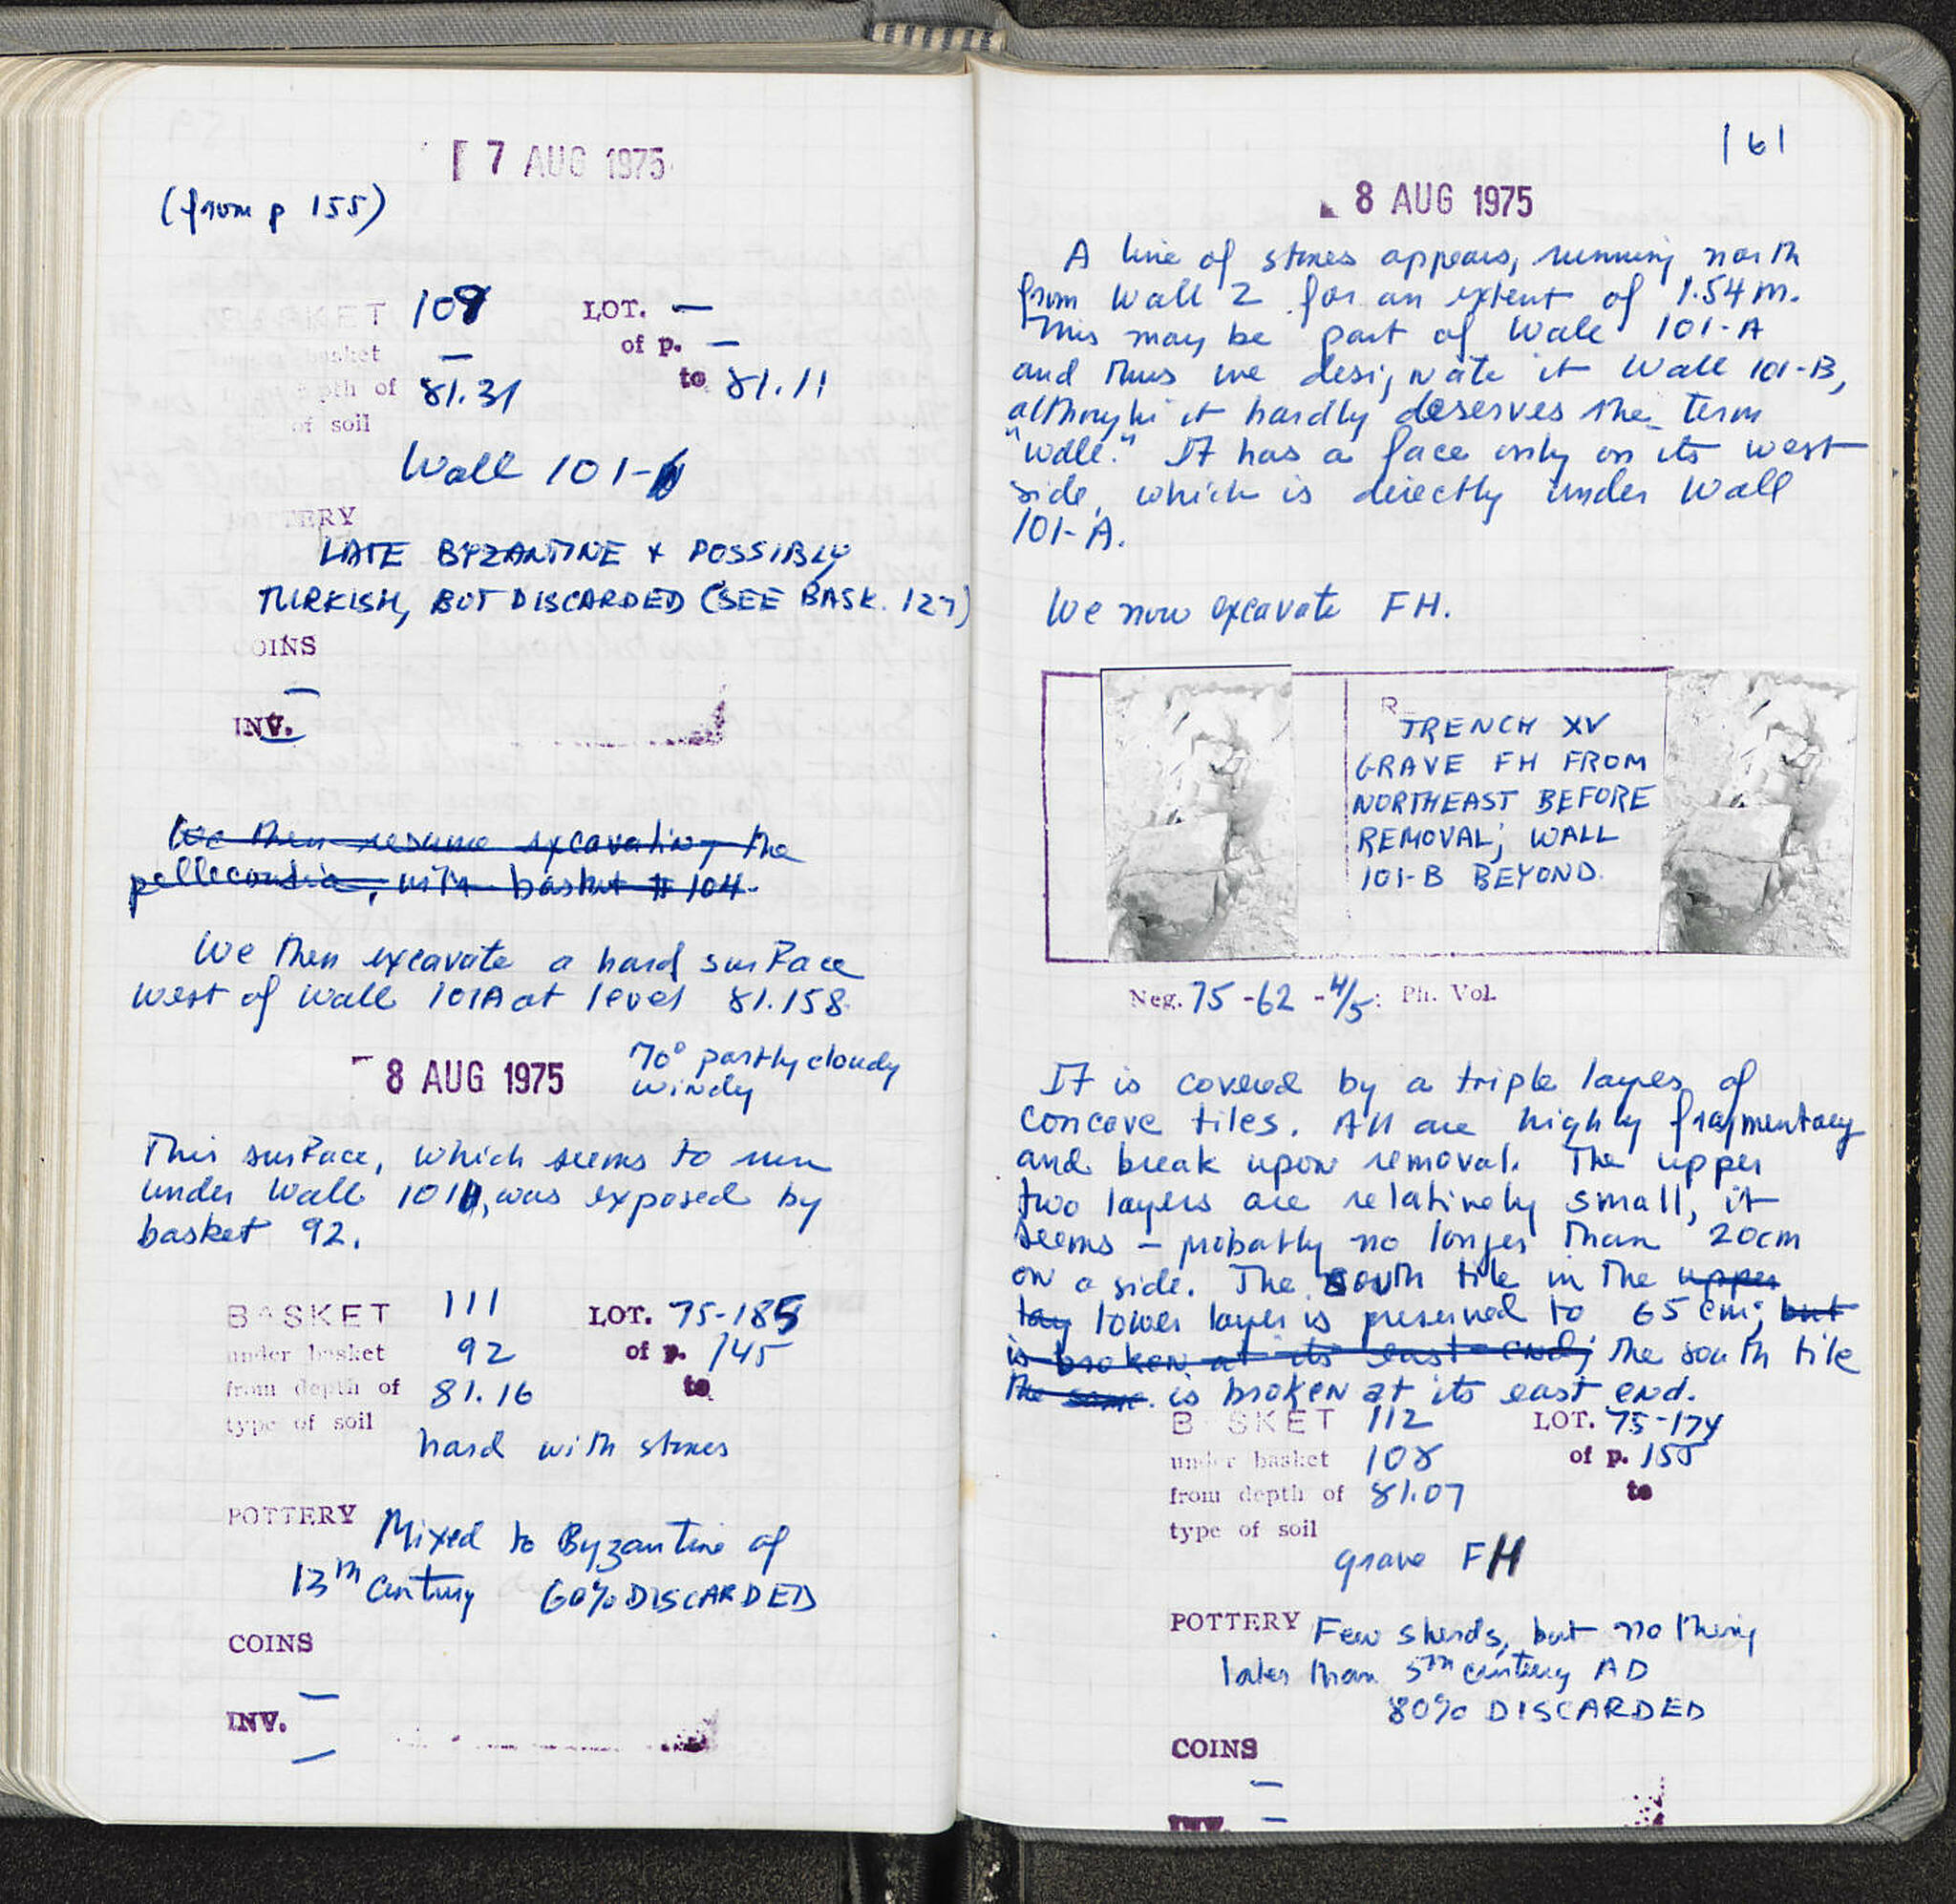 7 AUG 1975
(from p 155)
BASKET 109 LOT. —
under basket — of p. —
depth of 81.31 to 81.11
of soil
Wall 101-
POTTERY
LATE BYZANTINE + POSSIBLY
TURKISH, BUT DISCARDED (SEE BASK. 127)
COINS
—
INV.
—
We then resume excavating the
with basket # 104.
We then excavate a hard surface
west of wall 101A at level 81.158.
8 AUG 1975 70° partly cloudy
windy
This surface, which seems to run
under Wall 101, was exposed by
basket 92.
BASKET 111 LOT. 75-185
under basket 92 of p. 145
from depth of 81.16 to
type of soil
hard with stones
POTTERY Mixed to Byzantine of
13th century 60% DISCARDED
COINS
—
INV.
—
161
8 AUG 1975
A line of stones appears, running north
from Wall 2 for an extent of 1.54 m.
This may be part of Wall 101-A
and thus we designate it Wall 101-B,
although it hardly deserves the term
"wall." It has a face only on its west
side, which is directly under Wall
101-A.
We now excavate FH.
R
TRENCH XV
GRAVE FH FROM
NORTHEAST BEFORE
REMOVAL; WALL
101-B BEYOND.
Neg. 75-62-4/5: Ph. Vol.
It is covered by a triple layer of
concave tiles. All are highly fragmentary
and break upon removal. The upper
two layers are relatively small, it
seems – probably no longer than 20cm
on a side. The south tile in the upper
lay lower layer is preserved to 65 cm; but
is broken at its east end; the south tile
the same is broken at its east end.
BASKET 112 LOT. 75-174
under basket 108 of p. 155
from depth of 81.07 to
type of soil
grave FH
POTTERY Few sherds, but nothing
later than 5th century AD
80% DISCARDED
COINS
—
INV. —